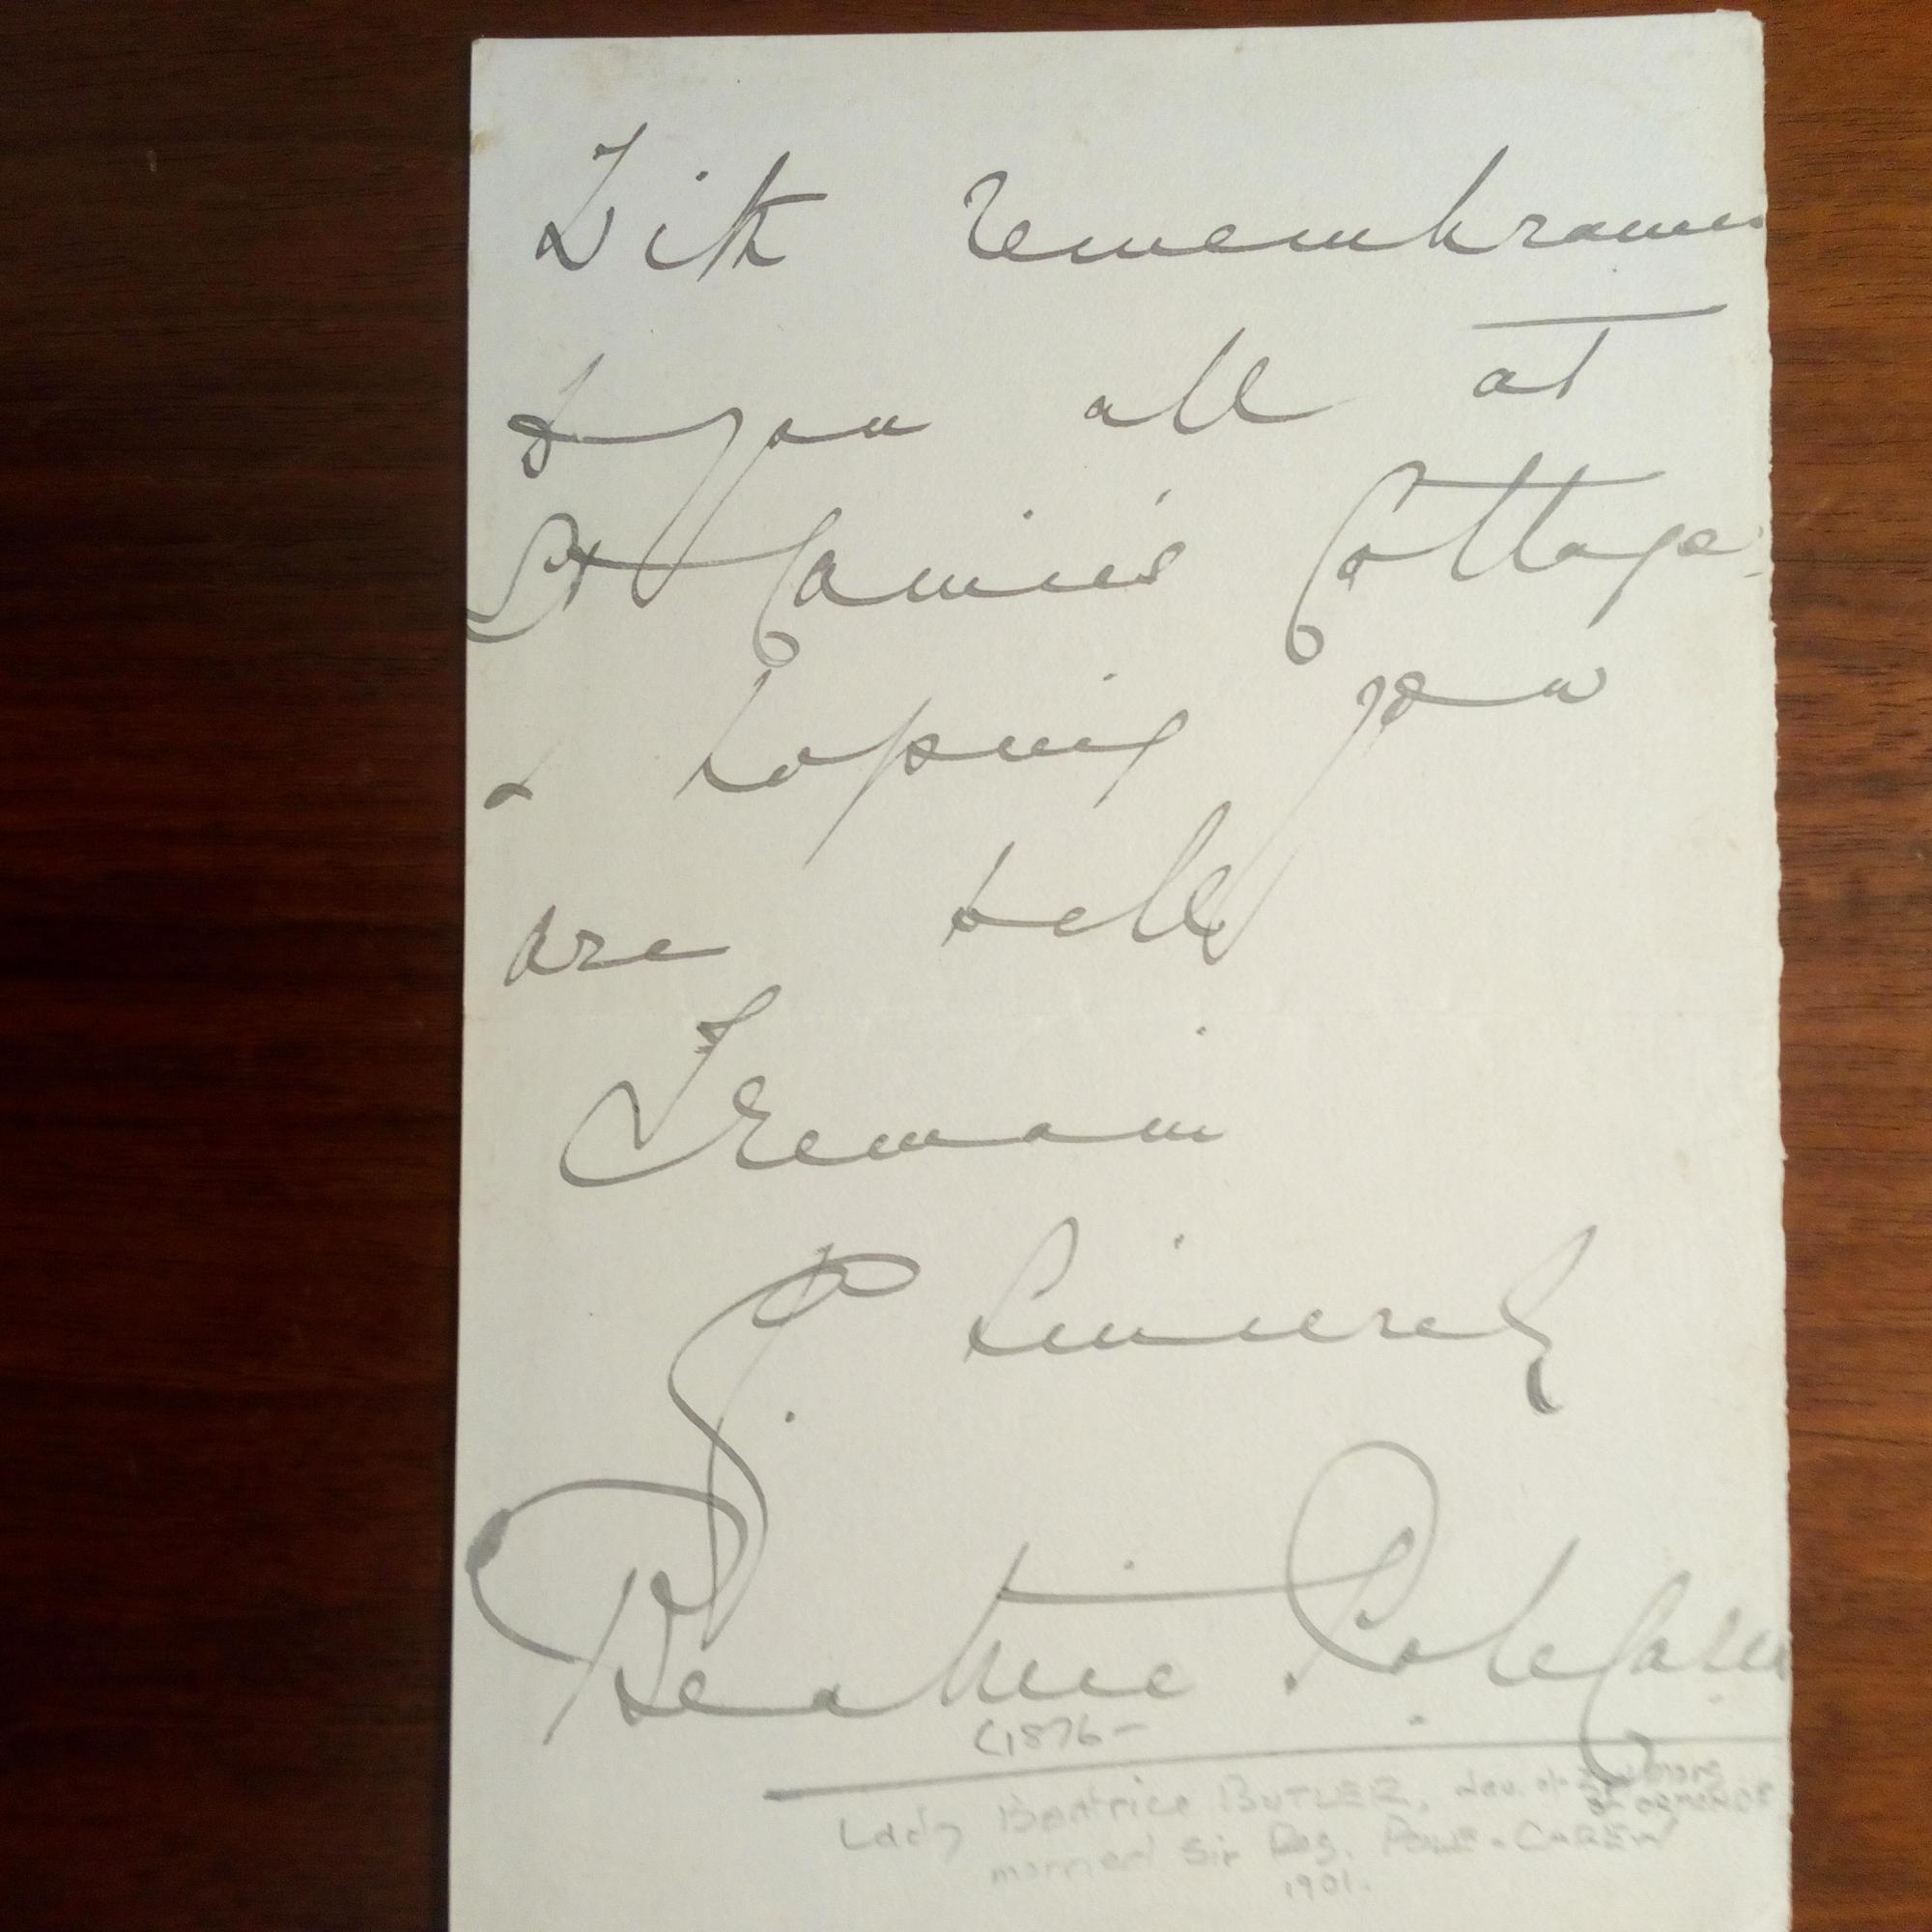 With remembrances
to you all at
St Cottage
& hoping you
are well
I remain
Sincerely
Beatrice Pole Carew
(1876-
Lady Beatrice BUTLER, dau. of
OF ORMONDE
married Sir Reg. POLE-CAREW
1901.